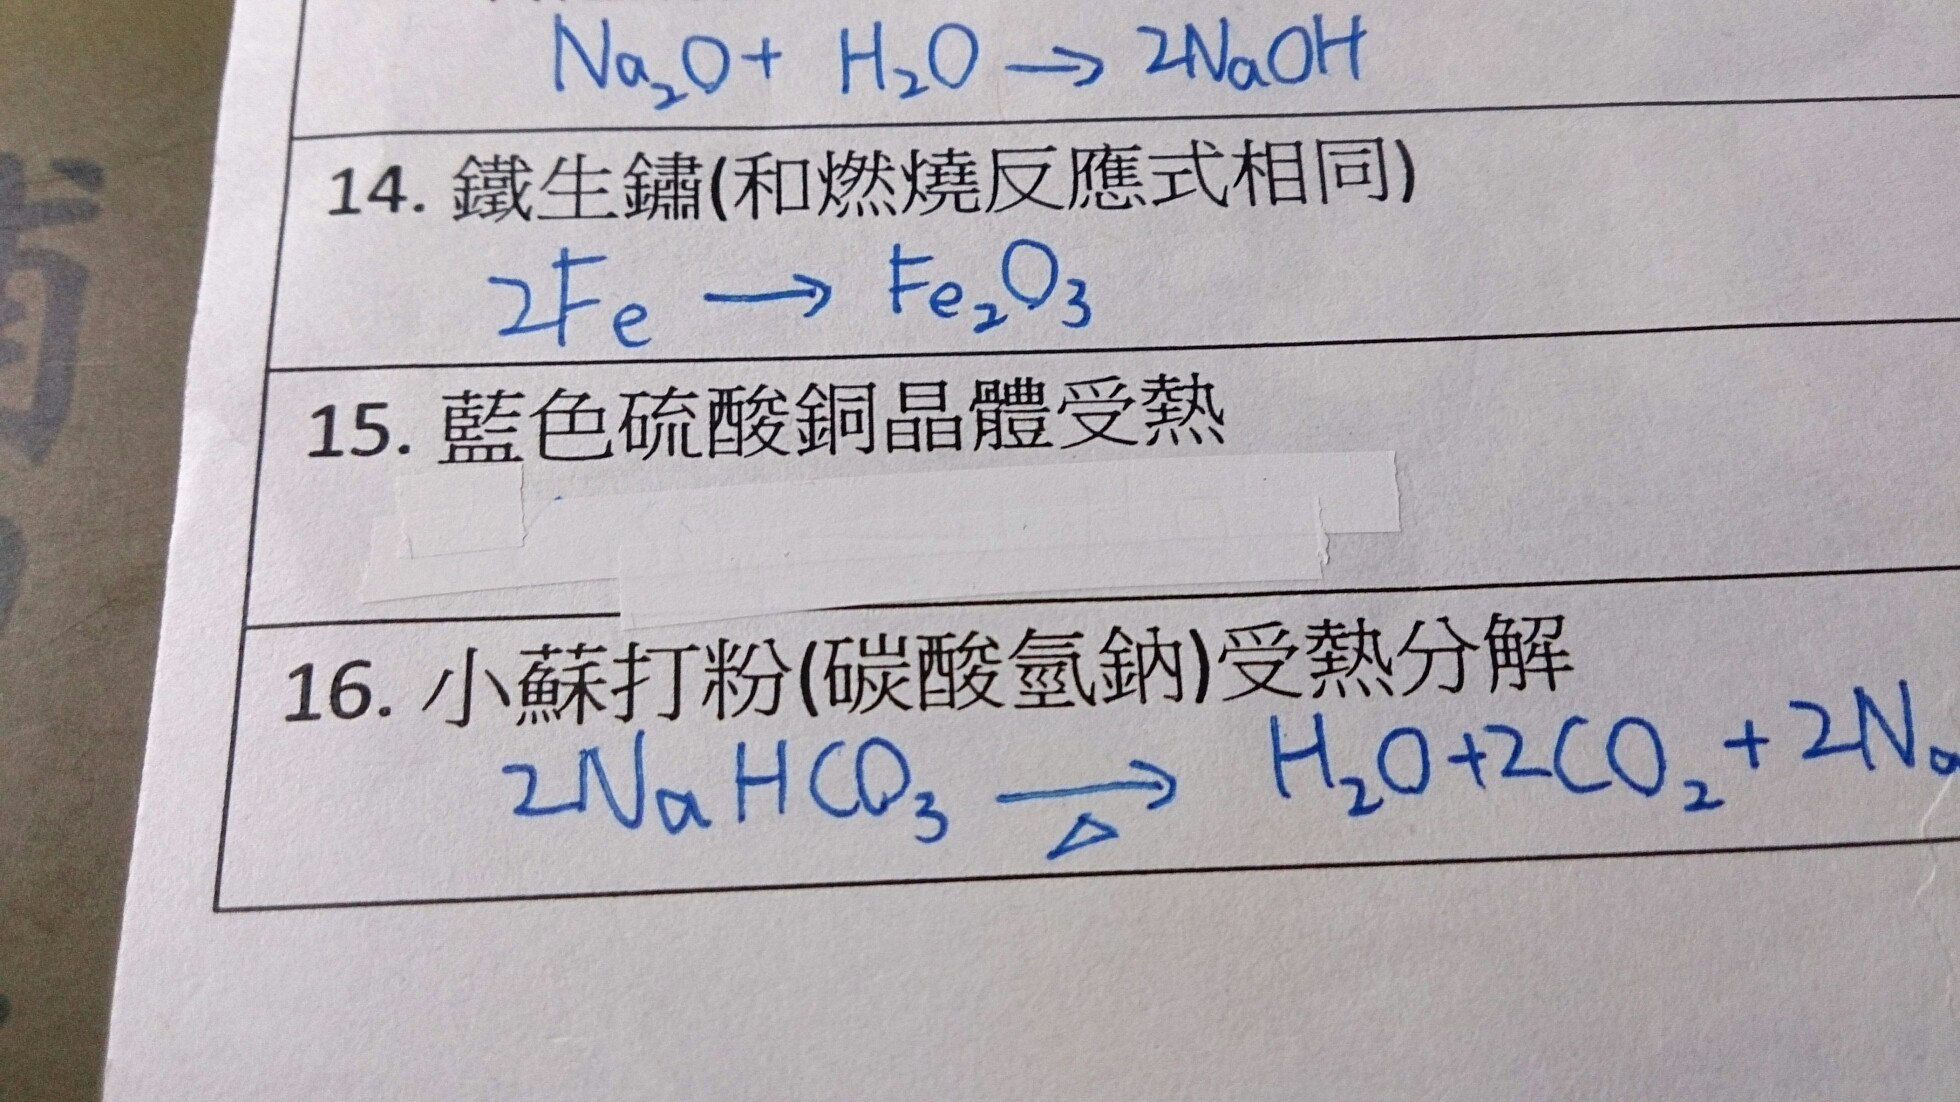 Na₂O + H₂O → 2NaOH
14. 鐵生鏽(和燃燒反應式相同)
2Fe → Fe₂O₃
15. 藍色硫酸銅晶體受熱
16. 小蘇打粉(碳酸氫鈉)受熱分解
2NaHCO₃ →△ H₂O+2CO₂+2Na